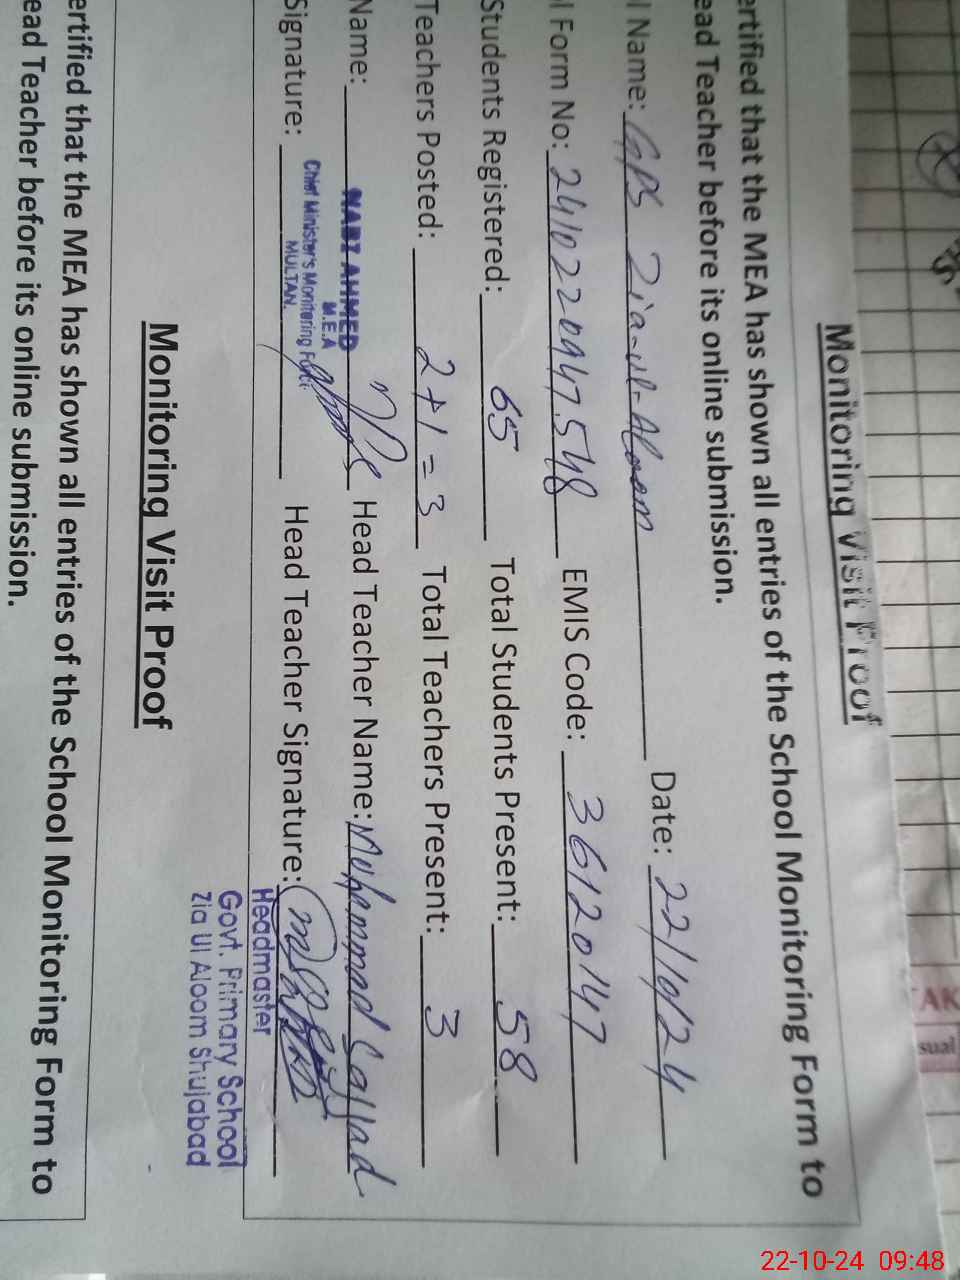 Monitoring Visit Proof
ertified that the MEA has shown all entries of the School Monitoring Form to
ead Teacher before its online submission.
l Name: GPS Zia-ul-Aloom Date: 22/10/24
l Form No: 2410220947548 EMIS Code: 36120147
Students Registered: 65 Total Students Present: 58
Teachers Posted: 2+1=3 Total Teachers Present: 3
Name: NABI AHMED Head Teacher Name: Muhammad Sajjad
M.E.A
Chief Minister's Monitoring Force
MULTAN.
Signature: Head Teacher Signature:
Headmaster
Govt. Primary School
Zia Ul Aloom Shujabad
Monitoring Visit Proof
ertified that the MEA has shown all entries of the School Monitoring Form to
ead Teacher before its online submission.
AK
sual
22-10-24 09:48